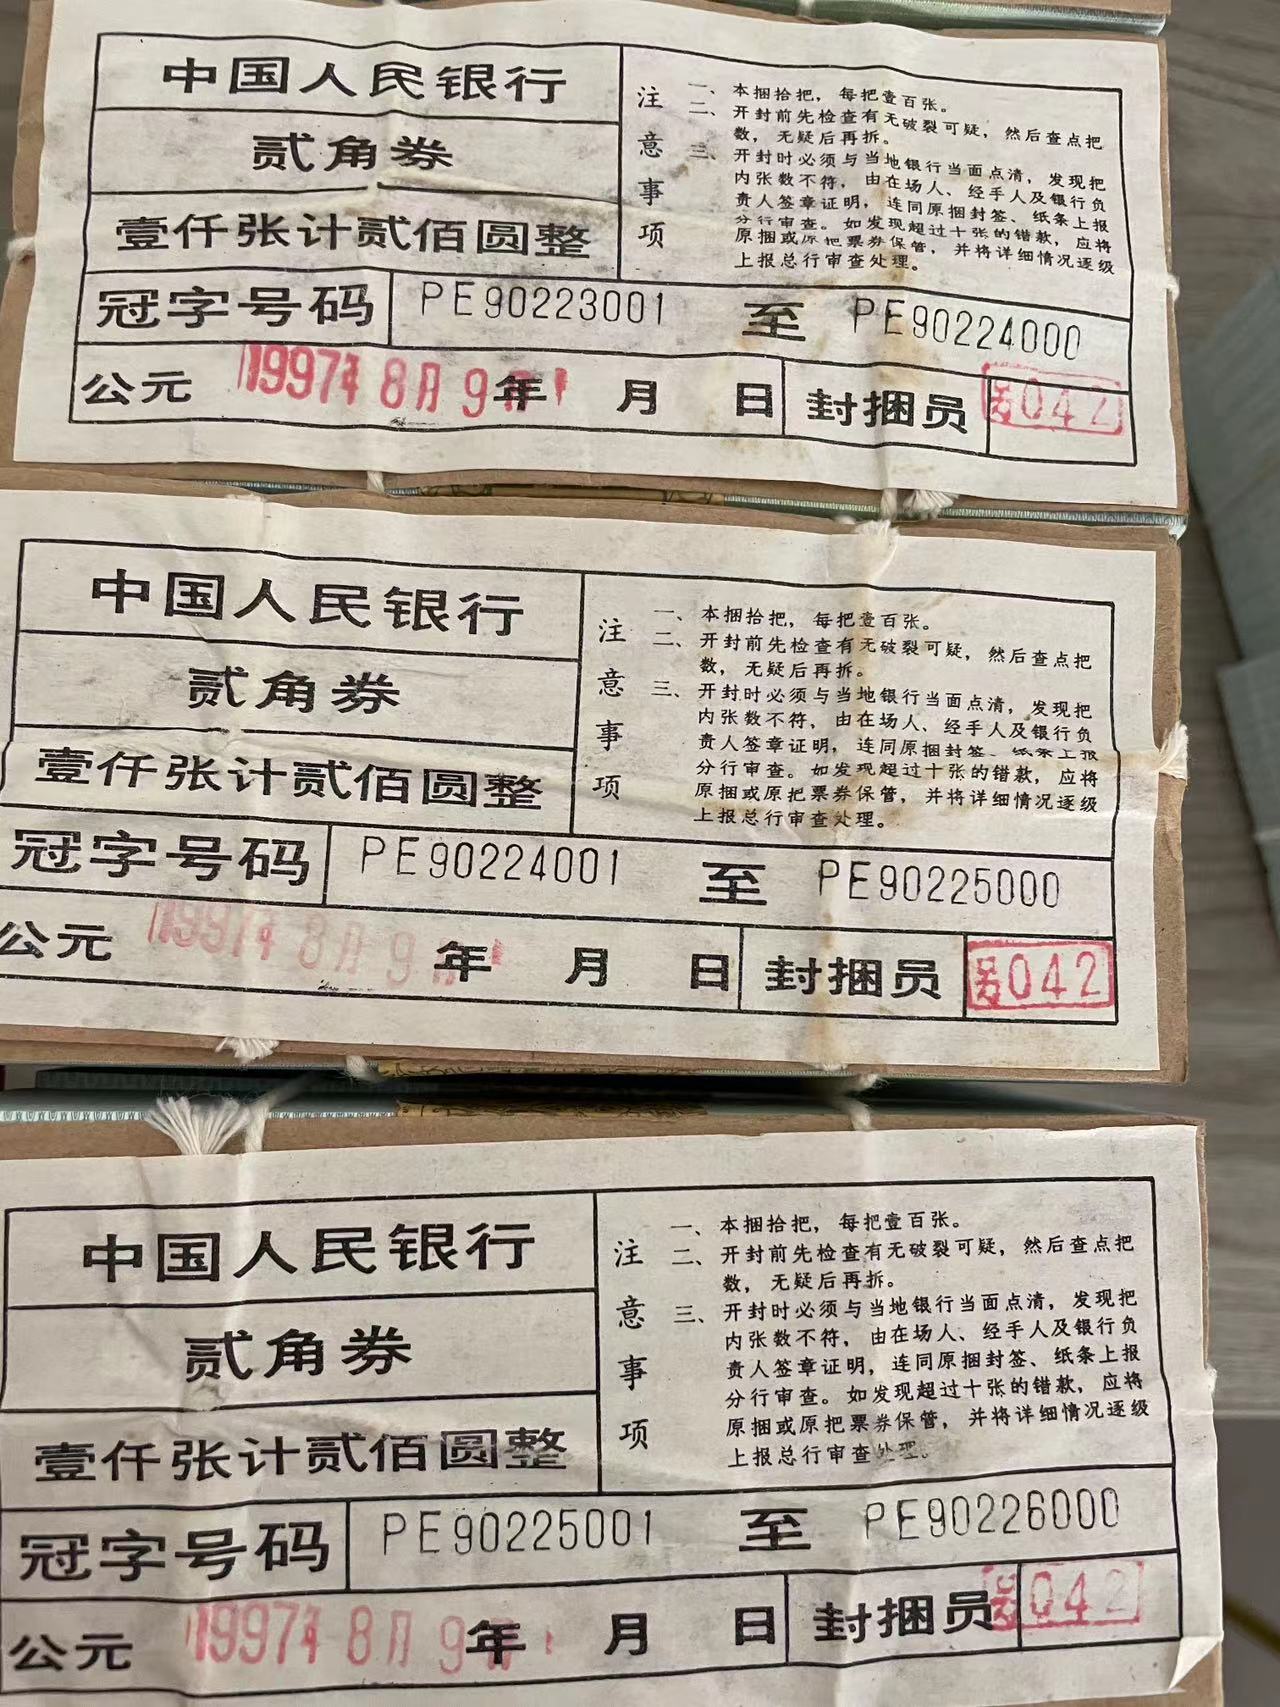 中国人民银行
贰角券
壹仟张计贰佰圆整
注意事项
一、本捆拾把，每把壹百张。
二、开封前先检查有无破裂可疑，然后查点把
数，无疑后再拆。
三、开封时必须与当地银行当面点清，发现把
内张数不符，由在场人、经手人及银行负
责人签章证明，连同原捆封签、纸条上报
分行审查。如发现超过十张的错款，应将
原捆或原把票券保管，并将详细情况逐级
上报总行审查处理。
冠字号码 PE90223001 至 PE90224000
公元 1997年8月9日 年 月 日 封捆员 号042
中国人民银行
贰角券
壹仟张计贰佰圆整
注意事项
一、本捆拾把，每把壹百张。
二、开封前先检查有无破裂可疑，然后查点把
数，无疑后再拆。
三、开封时必须与当地银行当面点清，发现把
内张数不符，由在场人、经手人及银行负
责人签章证明，连同原捆封签、纸条上报
分行审查。如发现超过十张的错款，应将
原捆或原把票券保管，并将详细情况逐级
上报总行审查处理。
冠字号码 PE90224001 至 PE90225000
公元 1997年8月9日 年 月 日 封捆员 号042
中国人民银行
贰角券
壹仟张计贰佰圆整
注意事项
一、本捆拾把，每把壹百张。
二、开封前先检查有无破裂可疑，然后查点把
数，无疑后再拆。
三、开封时必须与当地银行当面点清，发现把
内张数不符，由在场人、经手人及银行负
责人签章证明，连同原捆封签、纸条上报
分行审查。如发现超过十张的错款，应将
原捆或原把票券保管，并将详细情况逐级
上报总行审查处理。
冠字号码 PE90225001 至 PE90226000
公元 1997年8月9日 年 月 日 封捆员 号042